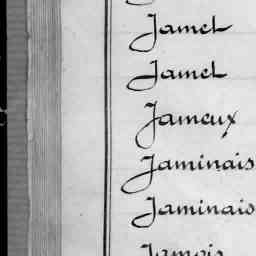 Jamet
Jamet
Jameux
Jaminais
Jaminais
Jamois